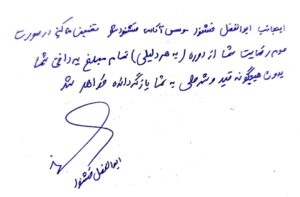 اینجانب ابوالفضل خشنود موسس آکادمی خشنود تضمین میکنم در صورت
عدم رضایت شما از دوره (به هر دلیلی) تمام مبلغ پرداختی شما
بدون هیچگونه قید و شرطی به شما بازگردانده خواهد شد
ابوالفضل خشنود